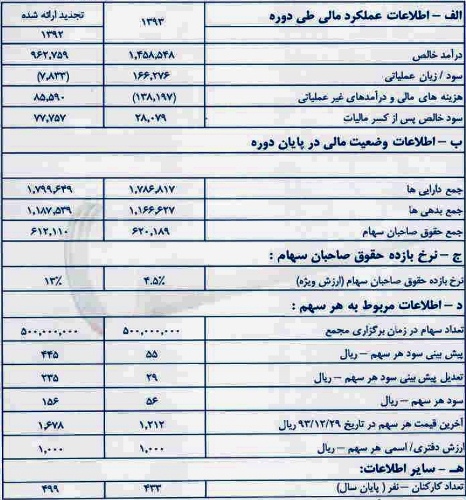 الف – اطلاعات عملکرد مالی طی دوره ۱۳۹۳ تجدید ارائه شده ۱۳۹۲
درآمد خالص ۱,۴۵۸,۵۴۸ ۹۶۲,۷۵۹
سود / زیان عملیاتی ۱۶۶,۲۷۶ (۷,۸۳۳)
هزینه های مالی و درآمدهای غیر عملیاتی (۱۳۸,۱۹۷) ۸۵,۵۹۰
سود خالص پس از کسر مالیات ۲۸,۰۷۹ ۷۷,۷۵۷
ب – اطلاعات وضعیت مالی در پایان دوره
جمع دارایی ها ۱,۷۸۶,۸۱۷ ۱,۷۹۹,۶۴۹
جمع بدهی ها ۱,۱۶۶,۶۲۷ ۱,۱۸۷,۵۳۹
جمع حقوق صاحبان سهام ۶۲۰,۱۸۹ ۶۱۲,۱۱۰
ج – نرخ بازده حقوق صاحبان سهام :
نرخ بازده حقوق صاحبان سهام (ارزش ویژه) ۴.۵٪ ۱۳٪
د – اطلاعات مربوط به هر سهم :
تعداد سهام در زمان برگزاری مجمع ۵۰۰,۰۰۰,۰۰۰ ۵۰۰,۰۰۰,۰۰۰
پیش بینی سود هر سهم – ریال ۵۵ ۴۴۵
تعدیل پیش بینی سود هر سهم – ریال ۲۹ ۲۳۵
سود هر سهم – ریال ۵۶ ۱۵۶
آخرین قیمت هر سهم در تاریخ ۹۳/۱۲/۲۹ ریال ۱,۲۱۲ ۱,۶۷۸
ارزش دفتری/ اسمی هر سهم – ریال ۱,۰۰۰ ۱,۰۰۰
هـ – سایر اطلاعات:
تعداد کارکنان – نفر ( پایان سال) ۴۳۳ ۴۹۹